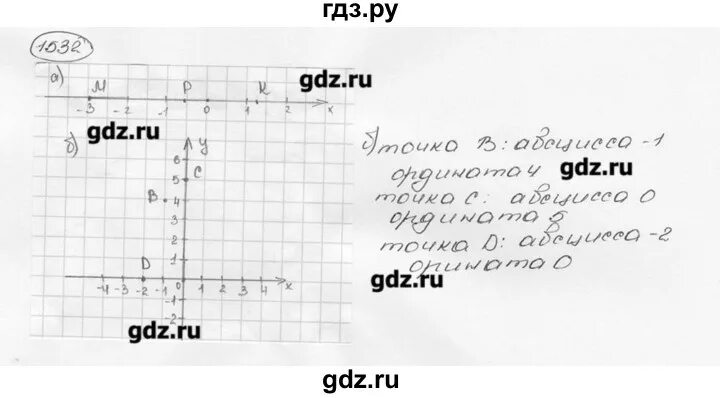 гдз.ру
1532
а)
gdz.ru
M P K
-3 -2 -1 0 1 2 x
gdz.ru
б)
y
6
5 C
B 4
3
2
D 1
-4 -3 -2 -1 0 1 2 3 4 x
-1
-2
gdz.ru
б) точка В: абсцисса -1
ордината 4
gdz.ru
точка С: абсцисса 0
ордината 5
точка D: абсцисса -2
орината 0
gdz.ru
gdz.ru